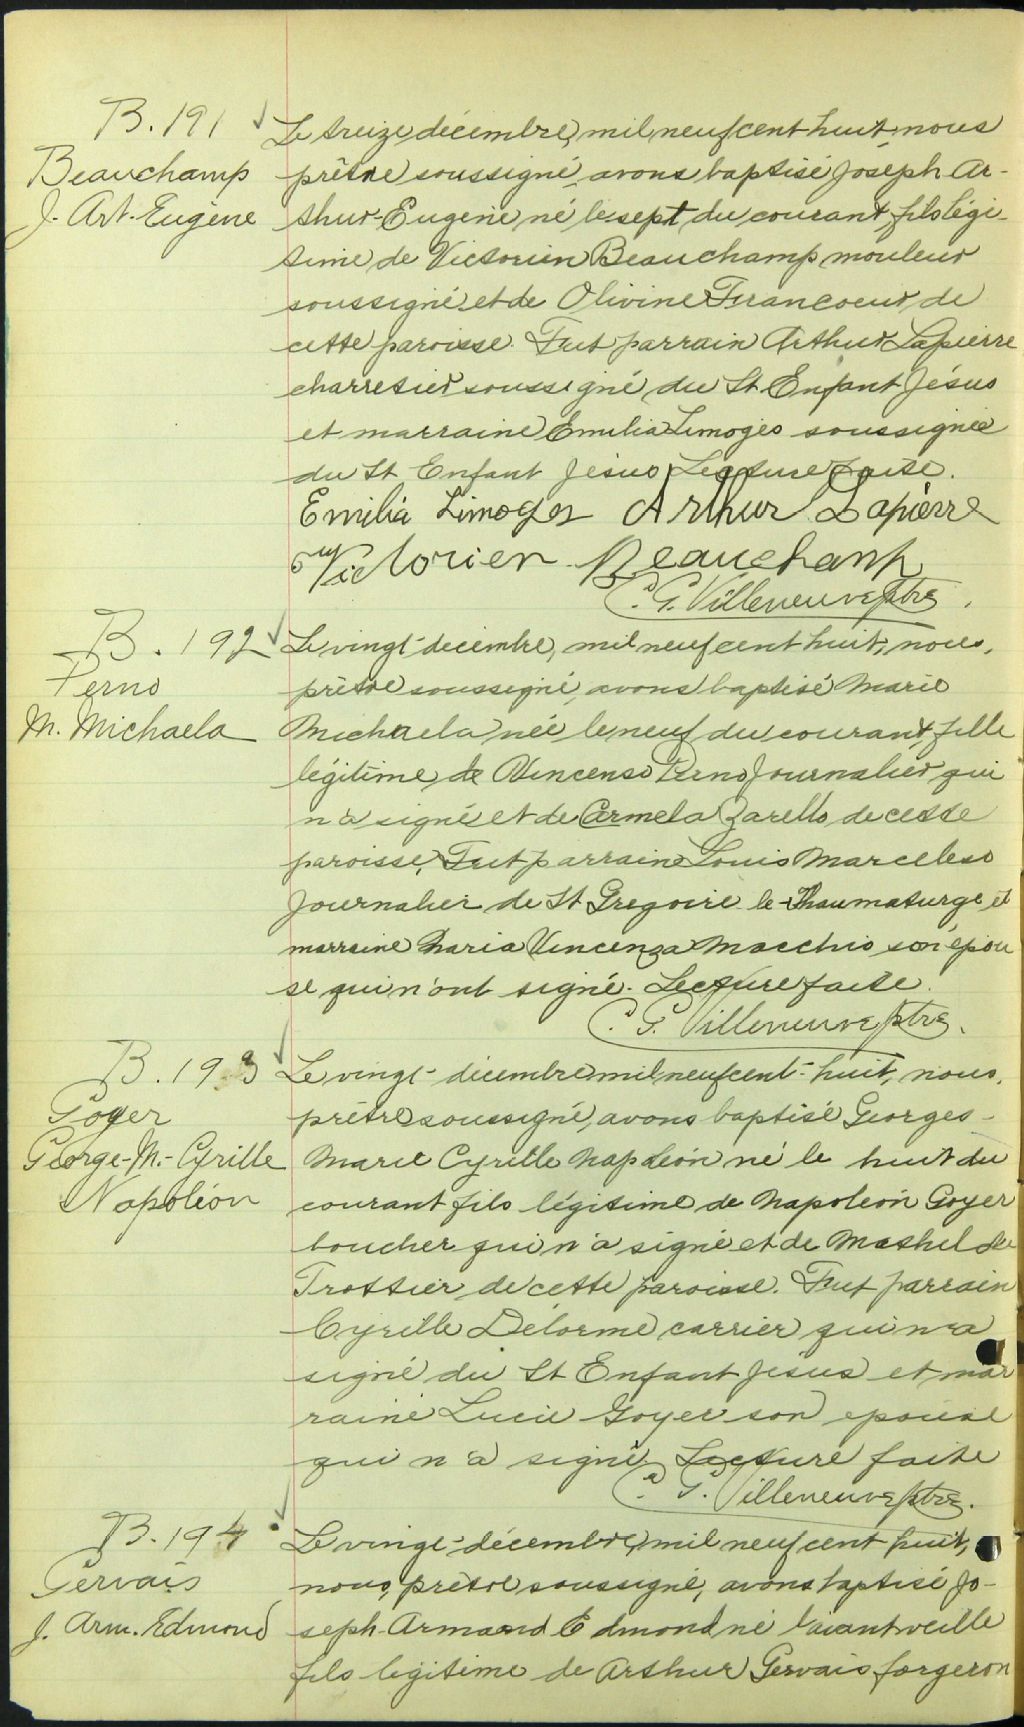 B. 191
Beauchamp
J. Art. Eugène
Le treize décembre, mil neuf cent huit, nous
prêtre soussigné, avons baptisé Joseph Ar-
thur-Eugène né le sept du courant, fils légi-
time de Victorien Beauchamp mouleur
soussigné et de Olivine Francoeur de
cette paroisse. Fut parrain Arthur Lapierre
charretier soussigné du St Enfant Jésus
et marraine Emilia Limoges soussignée
du St Enfant Jésus Lecture faite.
Emilia Limoges Arthur Lapierre
Victorien Beauchamp
C. G. Villeneuve ptre.
B. 192
Perno
M. Michaela
Le vingt decembre, mil neuf cent huit, nous,
prêtre soussigné, avons baptisé Marie
Michaela née le neuf du courant, fille
légitime de Vincenso Perno Journalier qui
n'a signé et de Carmela Zarello de cette
paroisse, Fut parrain Louis Marceleso
Journalier de St Gregoire le Thaumaturge et
marraine Maria Vincenza Macchio son épou
se qui n'ont signé. Lecture faite.
C. G. Villeneuve ptre.
B. 193
Goyer
George-M.-Cyrille
Napoléon
Le vingt décembre mil neuf cent-huit, nous,
prêtre soussigné, avons baptisé Georges-
Marie Cyrille Napoléon né le huit du
courant fils légitime de Napoléon Goyer
boucher qui n'a signé et de Mathilde
Trottier de cette paroisse. Fut parrain
Cyrille Délorme carrier qui n'a
signé du St Enfant Jésus et mar
raine Lucie Goyer son epouse
qui n'a signé Lecture faite
C. G. Villeneuve ptre.
B. 194
Gervais
J. Arm. Edmond
Le vingt décembre, mil neuf cent huit,
nous, prêtre soussigné, avons baptisé Jo-
seph-Armand Edmond né l'avant veille
fils legitime de Arthur Gervais forgeron